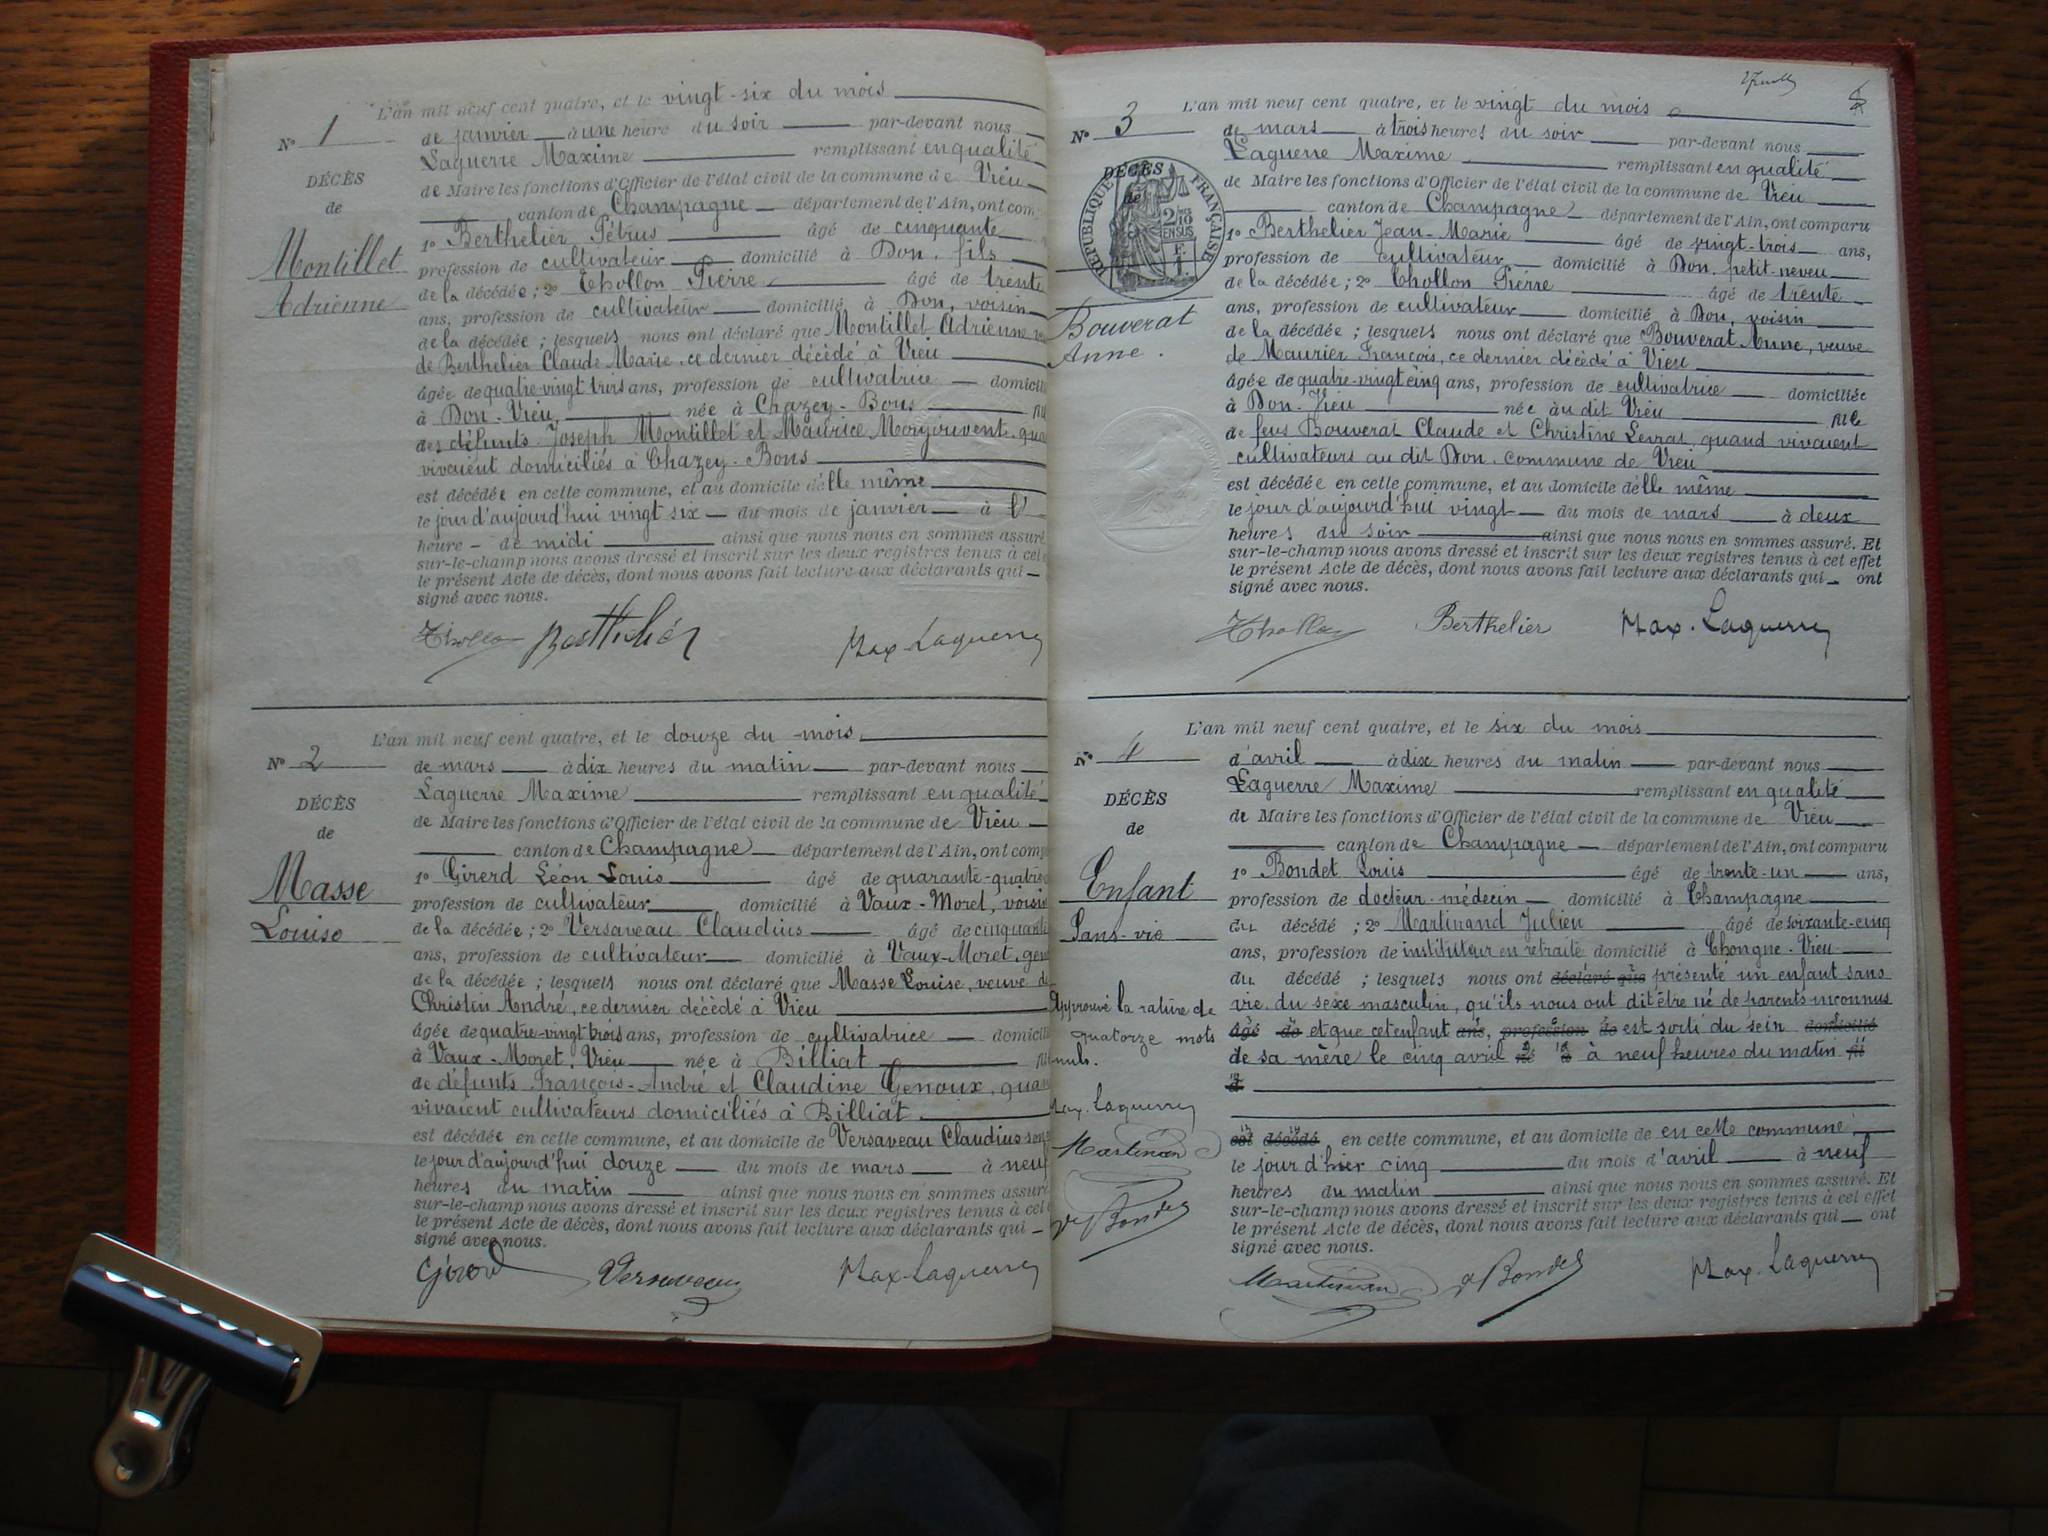 L'an mil neuf cent quatre, et le vingt-six du mois
N° 1
de janvier à une heure du soir par-devant nous
Laguerre Maxime remplissant en qualité
DÉCÈS
de Maire les fonctions d'Officier de l'état civil de la commune de Vieu
de
canton de Champagne département de l'Ain, ont comp
1° Berthelier Pétrus âgé de cinquante
Montillet
profession de cultivateur domicilié à Don, fils
Adrienne
de la décédée; 2° Chollon Pierre âgé de trente
ans, profession de cultivateur domicilié à Don, voisin
de la décédée; lesquels nous ont déclaré que Montillet Adrienne
de Berthelier Claude Marie, ce dernier décédé à Vieu
âgée de quatre-vingt trois ans, profession de cultivatrice domicili
à Don-Vieu née à Chazey-Bons
des défunts Joseph Montillet et Maurice quan
vivaient domiciliés à Chazey-Bons
est décédée en cette commune, et au domicile d'elle même
le jour d'aujourd'hui vingt six du mois de janvier à
heure de midi ainsi que nous nous en sommes assuré
sur-le-champ nous avons dressé et inscrit sur les deux registres tenus à cet
le présent Acte de décès, dont nous avons fait lecture aux déclarants qui
signé avec nous.
Chollon Berthelier Max. Laguerre
L'an mil neuf cent quatre, et le douze du mois
N° 2
de mars à dix heures du matin par-devant nous
Laguerre Maxime remplissant en qualité
DÉCÈS
de Maire les fonctions d'Officier de l'état civil de la commune de Vieu
de
canton de Champagne département de l'Ain, ont comp
Masse
1° Girerd Léon Louis âgé de quarante-quatre
profession de cultivateur domicilié à Vaux-Moret, voisin
Louise
de la décédée; 2° Versaveau Claudius âgé de cinquante
ans, profession de cultivateur domicilié à Vaux-Moret, gen
de la décédée; lesquels nous ont déclaré que Masse Louise, veuve de
Christin André, ce dernier décédé à Vieu
âgée de quatre-vingt trois ans, profession de cultivatrice domicili
à Vaux-Moret, Vieu née à Billiat
de défunts François-André et Claudine Genoux, quan
vivaient cultivateurs domiciliés à Billiat
est décédée en cette commune, et au domicile de Versaveau Claudius son
le jour d'aujourd'hui douze du mois de mars à neuf
heures du matin ainsi que nous nous en sommes assuré
sur-le-champ nous avons dressé et inscrit sur les deux registres tenus à cet
le présent Acte de décès, dont nous avons fait lecture aux déclarants qui
signé avec nous.
Girerd Versaveau Max. Laguerre
L'an mil neuf cent quatre, et le vingt du mois
N° 3
de mars à trois heures du soir par-devant nous
Laguerre Maxime remplissant en qualité
DÉCÈS
de Maire les fonctions d'Officier de l'état civil de la commune de Vieu
de
RÉPUBLIQUE FRANÇAISE
2/10 EN SUS
canton de Champagne département de l'Ain, ont comparu
1° Berthelier Jean-Marie âgé de vingt-trois ans,
profession de cultivateur domicilié à Don, petit-neveu
de la décédée; 2° Chollon Pierre âgé de trente
Bouverat
ans, profession de cultivateur domicilié à Don, voisin
Anne.
de la décédée; lesquels nous ont déclaré que Bouverat Anne, veuve
de Maurier François, ce dernier décédé à Vieu
âgée de quatre-vingt cinq ans, profession de cultivatrice domiciliée
à Don-Vieu née au dit Vieu fille
de feus Bouverat Claude et Christine Levrat, quand vivaient
cultivateurs au dit Don, commune de Vieu
est décédée en cette commune, et au domicile d'elle même
le jour d'aujourd'hui vingt du mois de mars à deux
heures du soir ainsi que nous nous en sommes assuré. Et
sur-le-champ nous avons dressé et inscrit sur les deux registres tenus à cet effet
le présent Acte de décès, dont nous avons fait lecture aux déclarants qui ont
signé avec nous.
Chollon Berthelier Max. Laguerre
L'an mil neuf cent quatre, et le six du mois
N° 4
d'avril à dix heures du matin par-devant nous
Laguerre Maxime remplissant en qualité
DÉCÈS
de Maire les fonctions d'Officier de l'état civil de la commune de Vieu
de
canton de Champagne département de l'Ain, ont comparu
Enfant
1° Bondet Louis âgé de trente-un ans,
profession de docteur-médecin domicilié à Champagne
Sans-vie
du décédé; 2° Martinand Julien âgé de soixante-cinq
ans, profession de instituteur en retraite domicilié à Chongne-Vieu
du décédé; lesquels nous ont déclaré que présenté un enfant sans
vie, du sexe masculin, qu'ils nous ont dit être né de parents inconnus
âgé de et que cet enfant ans, profession de est sorti du sein domicilié
de sa mère le cinq avril né à à neuf heures du matin fil
d
Approuvé la rature de
quatorze mots
nuls.
Max. Laguerre
Martinand
Dr Bondet
est décédé en cette commune, et au domicile de en cette commune
le jour d'hier cinq du mois d'avril à neuf
heures du matin ainsi que nous nous en sommes assuré. Et
sur-le-champ nous avons dressé et inscrit sur les deux registres tenus à cet effet
le présent Acte de décès, dont nous avons fait lecture aux déclarants qui ont
signé avec nous.
Martinand Dr Bondet Max. Laguerre